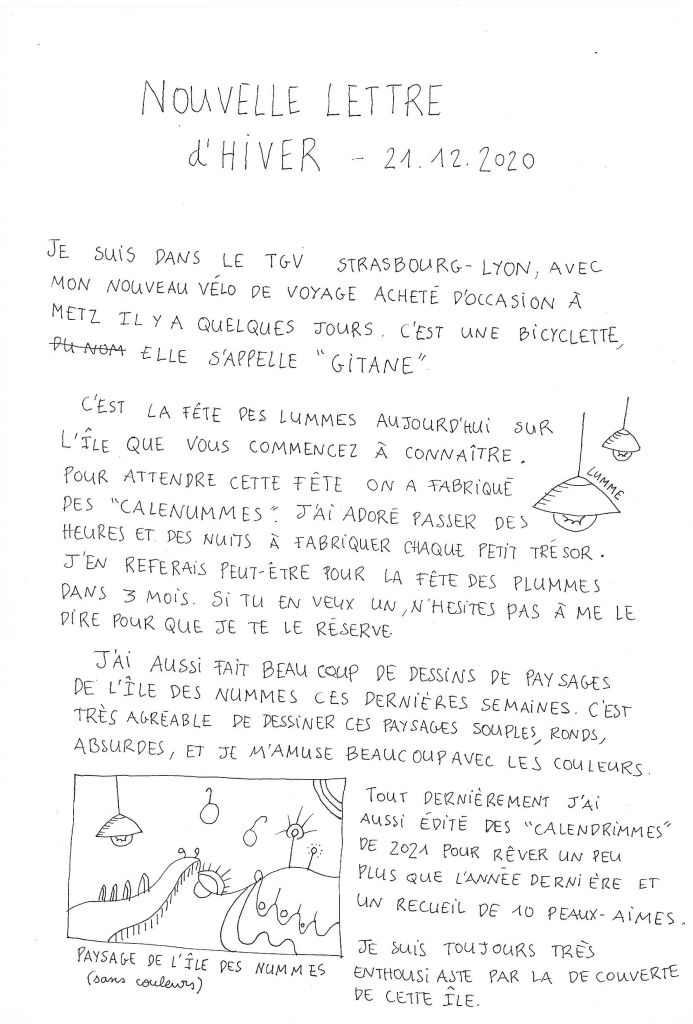 NOUVELLE LETTRE
d'HIVER - 21.12.2020
JE SUIS DANS LE TGV STRASBOURG-LYON, AVEC
MON NOUVEAU VÉLO DE VOYAGE ACHETÉ D'OCCASION À
METZ IL Y A QUELQUES JOURS. C'EST UNE BICYCLETTE,
DU NOM ELLE S'APPELLE "GITANE".
C'EST LA FÊTE DES LUMMES AUJOURD'HUI SUR
L'ÎLE QUE VOUS COMMENCEZ À CONNAÎTRE.
POUR ATTENDRE CETTE FÊTE ON A FABRIQUÉ
DES "CALENUMMES". J'AI ADORÉ PASSER DES
HEURES ET DES NUITS À FABRIQUER CHAQUE PETIT TRÉSOR.
J'EN REFERAIS PEUT-ÊTRE POUR LA FÊTE DES PLUMMES
DANS 3 MOIS. SI TU EN VEUX UN, N'HESITES PAS À ME LE
DIRE POUR QUE JE TE LE RÉSERVE.
LUMME
J'AI AUSSI FAIT BEAUCOUP DE DESSINS DE PAYSAGES
DE L'ÎLE DES NUMMES CES DERNIÈRES SEMAINES. C'EST
TRÈS AGRÉABLE DE DESSINER CES PAYSAGES SOUPLES, RONDS,
ABSURDES, ET JE M'AMUSE BEAUCOUP AVEC LES COULEURS.
TOUT DERNIÈREMENT J'AI
AUSSI ÉDITÉ DES "CALENDRIMMES"
DE 2021 POUR RÊVER UN PEU
PLUS QUE L'ANNÉE DERNIÈRE ET
UN RECUEIL DE 10 PEAUX-AIMES.
JE SUIS TOUJOURS TRÈS
ENTHOUSIASTE PAR LA DECOUVERTE
DE CETTE ÎLE.
PAYSAGE DE L'ÎLE DES NUMMES
(sans couleurs)